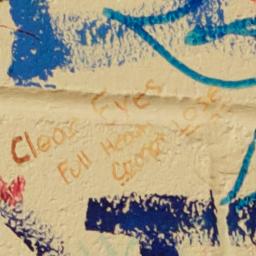 Clear Eyes
Full Hearts
Cannot Lose